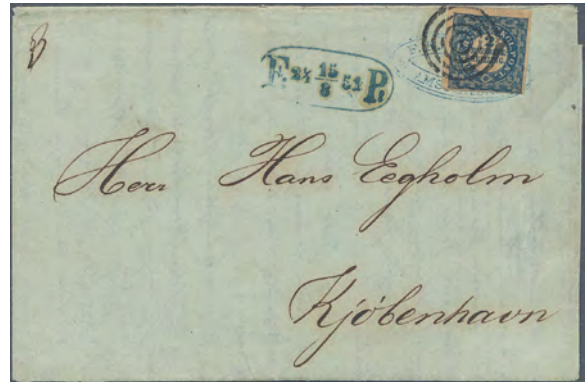 F. 2½ 15/8 51 P.
Herr Hans Eegholm
Kjöbenhavn